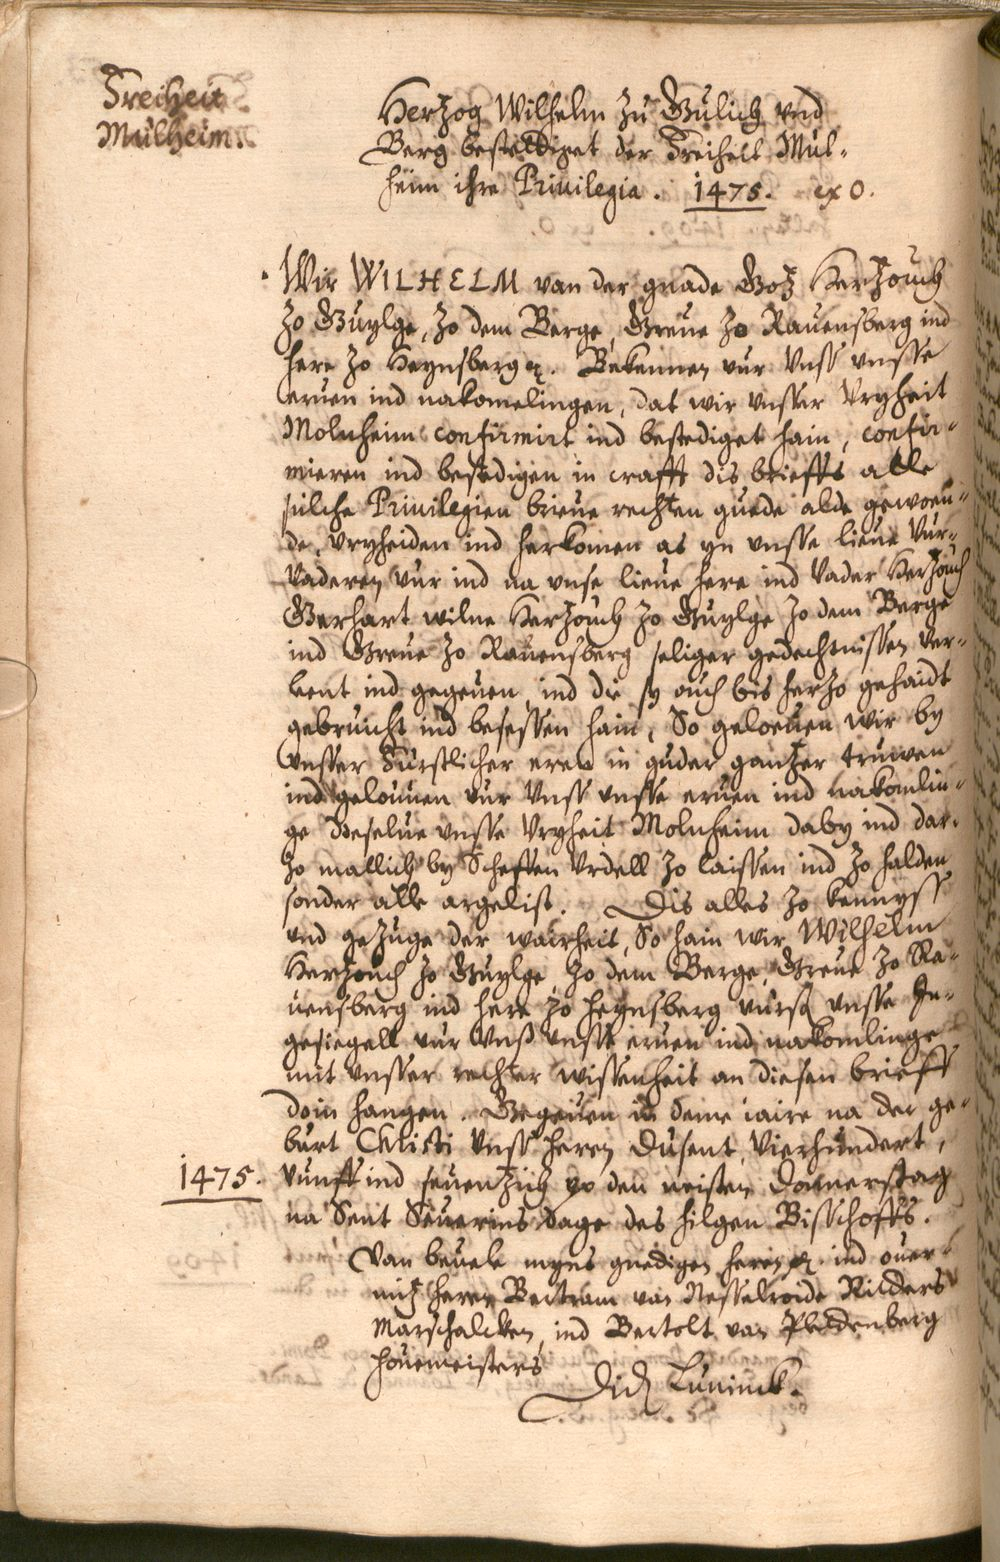 Freiheit
Mülheim.
Hertzog Wilhelm zu Gulich vnd
Berg bestediget der Freiheit Mül-
heim ihre Priuilegia. 1475. ex O.
Wir WILHELM van der gnade Gotz Hertzouch
zo Guylge, zo dem Berge, Greue zo Rauensberg ind
here zo Heynsberg &. Bekennen vur Vnss vnsse
eruen ind nakomelingen, dat wir vnsser Vryheit
Molnheim confirmirt ind bestediget hain, confir-
mieren ind bestedigen in crafft dis brieffs alle
sulche Priuilegien brieue rechten guede alde gewoen-
de, vryheiden ind herkomen as yn vnsse lieue Vur-
Vaderen vur ind na vnse lieue here ind Vader Hertzouch
Gerhart wilne Hertzouch zo Guylge zo dem Berge
ind Greue zo Rauensberg seliger gedechtnissen ver-
leent ind gegeuen, ind die sy ouch bis herzo gehaidt
gebruicht ind besessen hain, So geloeuen wir by
vnsser Furstlicher eren in guder gantzer truwen
ind gelouuen vur Vnss vnsse eruen ind nakomlin-
ge deselue vnsse Vryheit Molnheim daby ind dar-
zo mallich by Scheffen Vrdell zo laissen ind zo halden
sonder alle argelist. Dis alles zo kennyss
vnd gezuge der wairheit, So hain wir Wilhelm
Hertzouch zo Guylge zo dem Berge, Greue zo Ra-
uensberg ind here zo Heynsberg vurss vnsse In-
gesiegell vur Vnss vnsse eruen ind nakomlinge
mit vnsser rechter wissenheit an diesen brieff
doin hangen. Gegeuen in deme iaire na der ge-
burt Christi vnss heren Dusent, Vierhundert,
1475.
vunff ind seuentzich vp den neisten Donnerstag
na Sent Seuerins dage des hilgen Bisschoffs.
Van beuele myns gnedigen heren &. ind ouer-
mitz heren Bertram van Nesselroide Ritders
Marschalcken, ind Bertolt van Plettenberg
houemeisters
Did. Luninck.